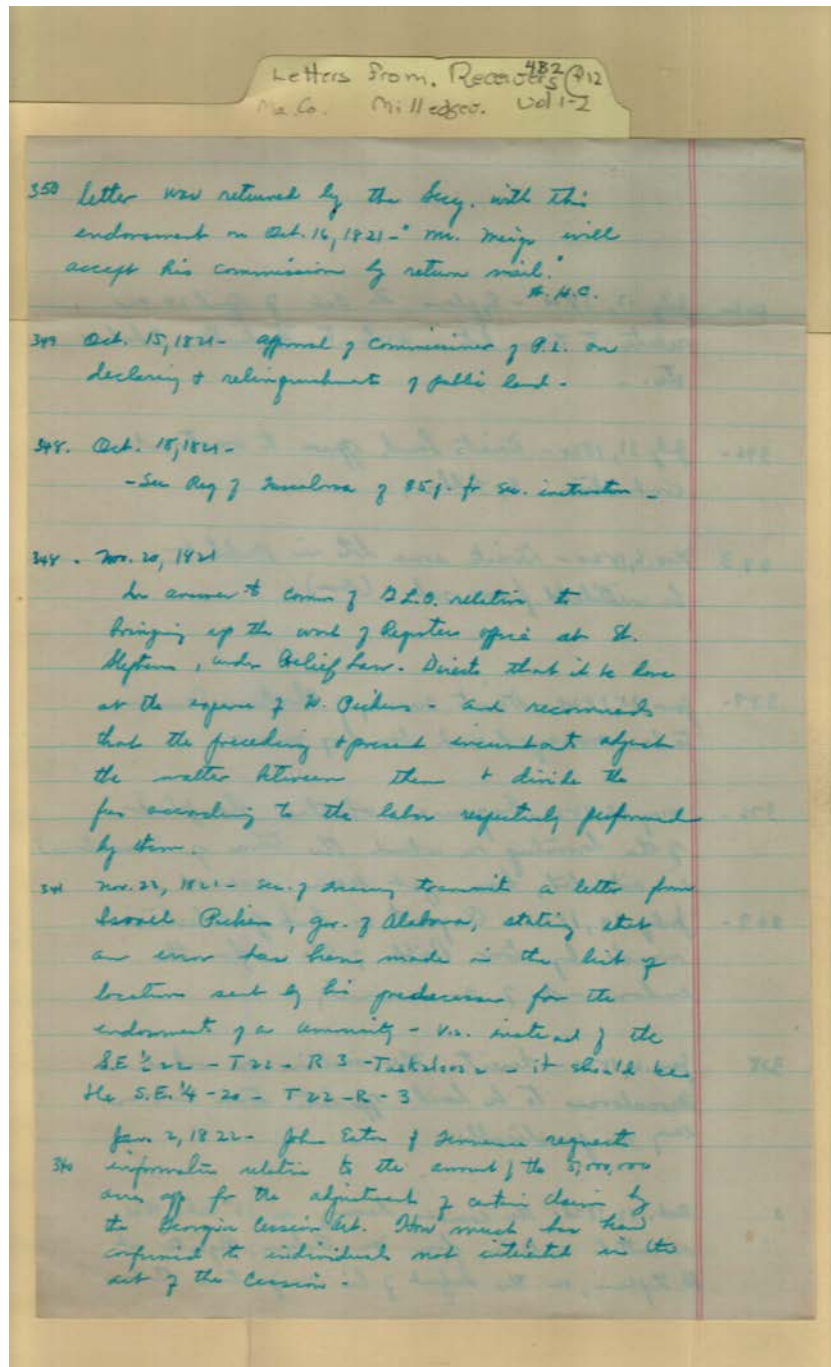 Letters From. Receivers 4B2 P12
Ma. Co. Milledgev. Vol 1-2
350 letter was returned by the Secy. with this
endorsement on Oct. 16, 1821 - "Mr. Meigs will
accept his commission by return mail."
349 Oct. 15, 1821 - approval of Commissioner of P.L. on
declaring & relinquishment of public land -
348. Oct. 18, 1821 -
- See Reg of Tuscaloosa of for sec. instruction -
348. Nov. 20, 1821
In answer to Comm of G.L.O. relative to
bringing up the work of Registers office at St.
Stephens, under Relief Law. Directs that it be done
at the expense of W. Pickens - and recommends
that the preceding & present incumbent adjust
the matter between them & divide the
fees according to the labor respectively performed
by them.
341 Nov. 23, 1821 - Sec. of Treasury transmits a letter from
Israel Pickens, gov. of Alabama, stating that
an error has been made in the list of
locations sent by his predecessor for the
endowment of a - viz. instead of the
S.E. 1/4 22 - T22 - R 3 - Tuskaloosa - it should be
the S.E. 1/4 - 20 - T22 - R - 3
Jan. 2, 1822 - John Eaton of Tennessee requests
340 information relative to the amount of the 5,000,000
acres app for the adjustment of certain claims by
the Georgia Cession Act. How much has been
confirmed to individuals not interested in the
act of the Cession -